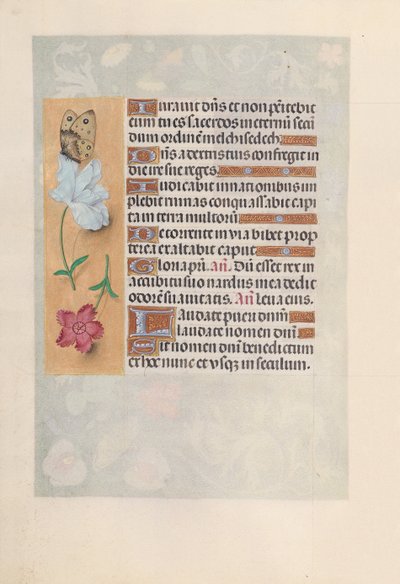 Iurauit dñs et non pẽitebit
eum tu es sacerdos in eternũ secũ
dum ordinẽ melchisedech.
Dñs a dextris tuis confregit in
die ire sue reges.
Iudicabit in nationibus im
plebit ruinas conquassabit capi
ta in terra multorũ.
De torrente in via bibet prop
terea exaltabit caput
Gloria pr̃i. Añ. Dũ esset rex in
accubitu suo nardus mea dedit
odorẽ suauitatis. Añ. Leua eius.
Laudate pueri dñm
laudate nomen dñi
Sit nomen dñi benedictum
ex hoc nunc et vsqꝫ in seculum.